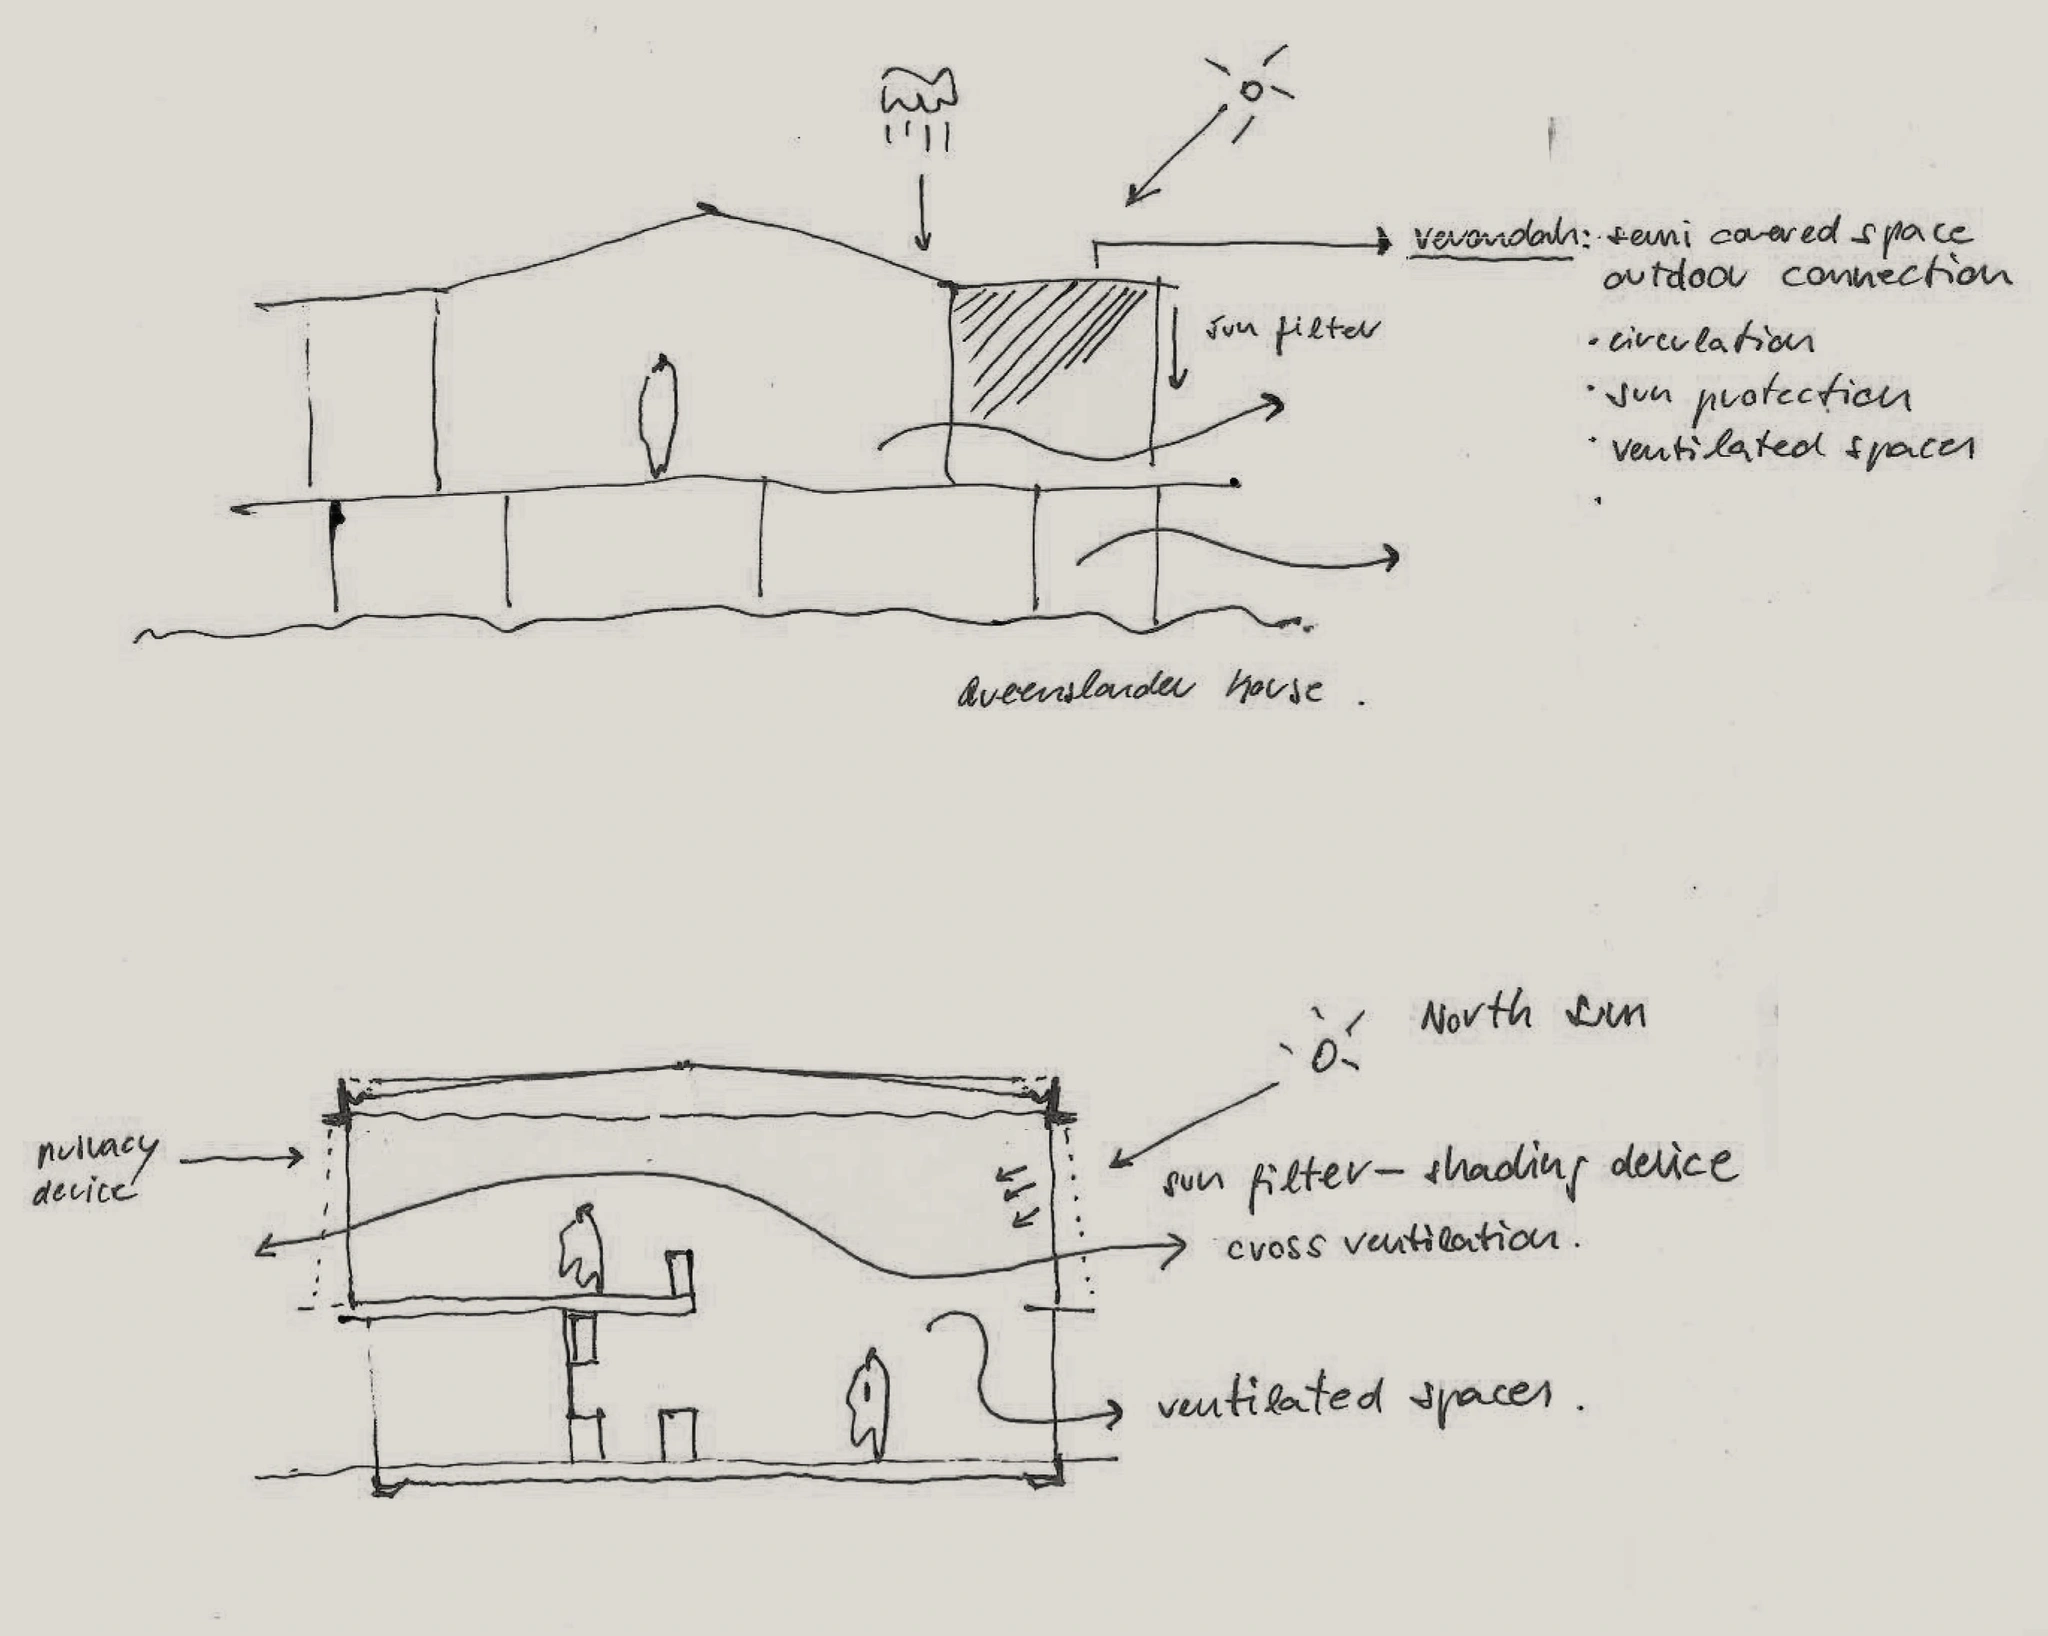 verandah: semi covered space
outdoor connection
sun filter
• circulation
• sun protection
• ventilated spaces
•
Queenslander House.
North Sun
privacy
device
sun filter – shading device
cross ventilation.
ventilated spaces.